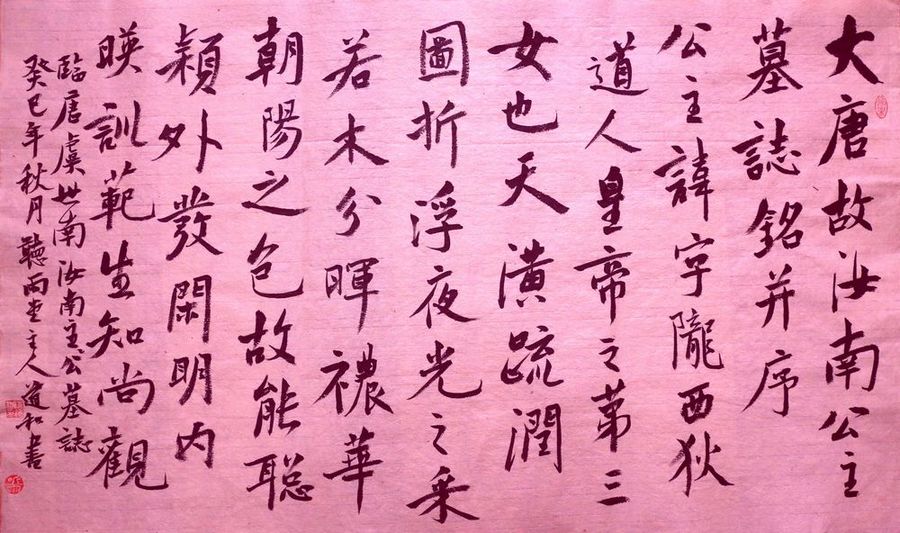 大唐故汝南公主
墓誌銘并序
公主諱字隴西狄
道人皇帝之第三
女也天潢疏潤
圖折浮夜光之采
若木分暉襛華
朝陽之色故能聡
穎外發閑明内
暎訓範生知尚觀
臨唐虞世南汝南主公墓誌
癸巳年秋月聽雨堂主人道和書